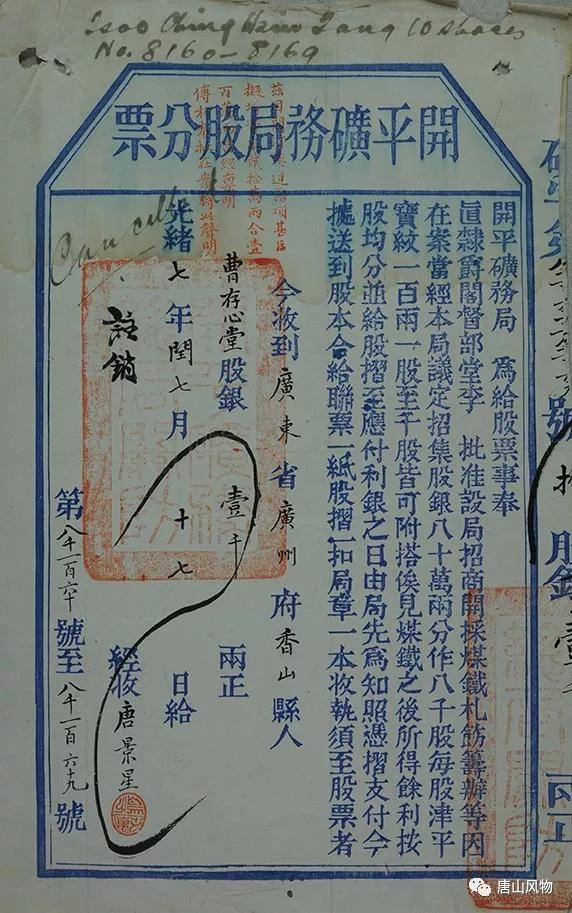 Tsoo Ching Hsin Tang 10 shares
No. 8160-8169
開平礦務局股分票
開平礦務局　為給股票事奉
直隸爵閣督部堂李　批准設局招商開採煤鐵札飭籌辦等因
在案當經本局議定招集股銀八十萬兩分作八千股每股津平
寶紋一百兩一股至千股皆可附搭俟見煤鐵之後所得餘利按
股均分並給股摺至應付利銀之日由局先為知照憑摺支付今
據送到股本合給聯票一紙股摺一扣局章一本收執須至股票者
今收到廣東省廣州府香山縣人
曹存心堂股銀壹千兩正
光緒七年閏七月十七日給
Cancelled
註銷
經收唐景星
第八千一百六十號至八千一百六十九號
號
股銀壹
兩正
唐山风物